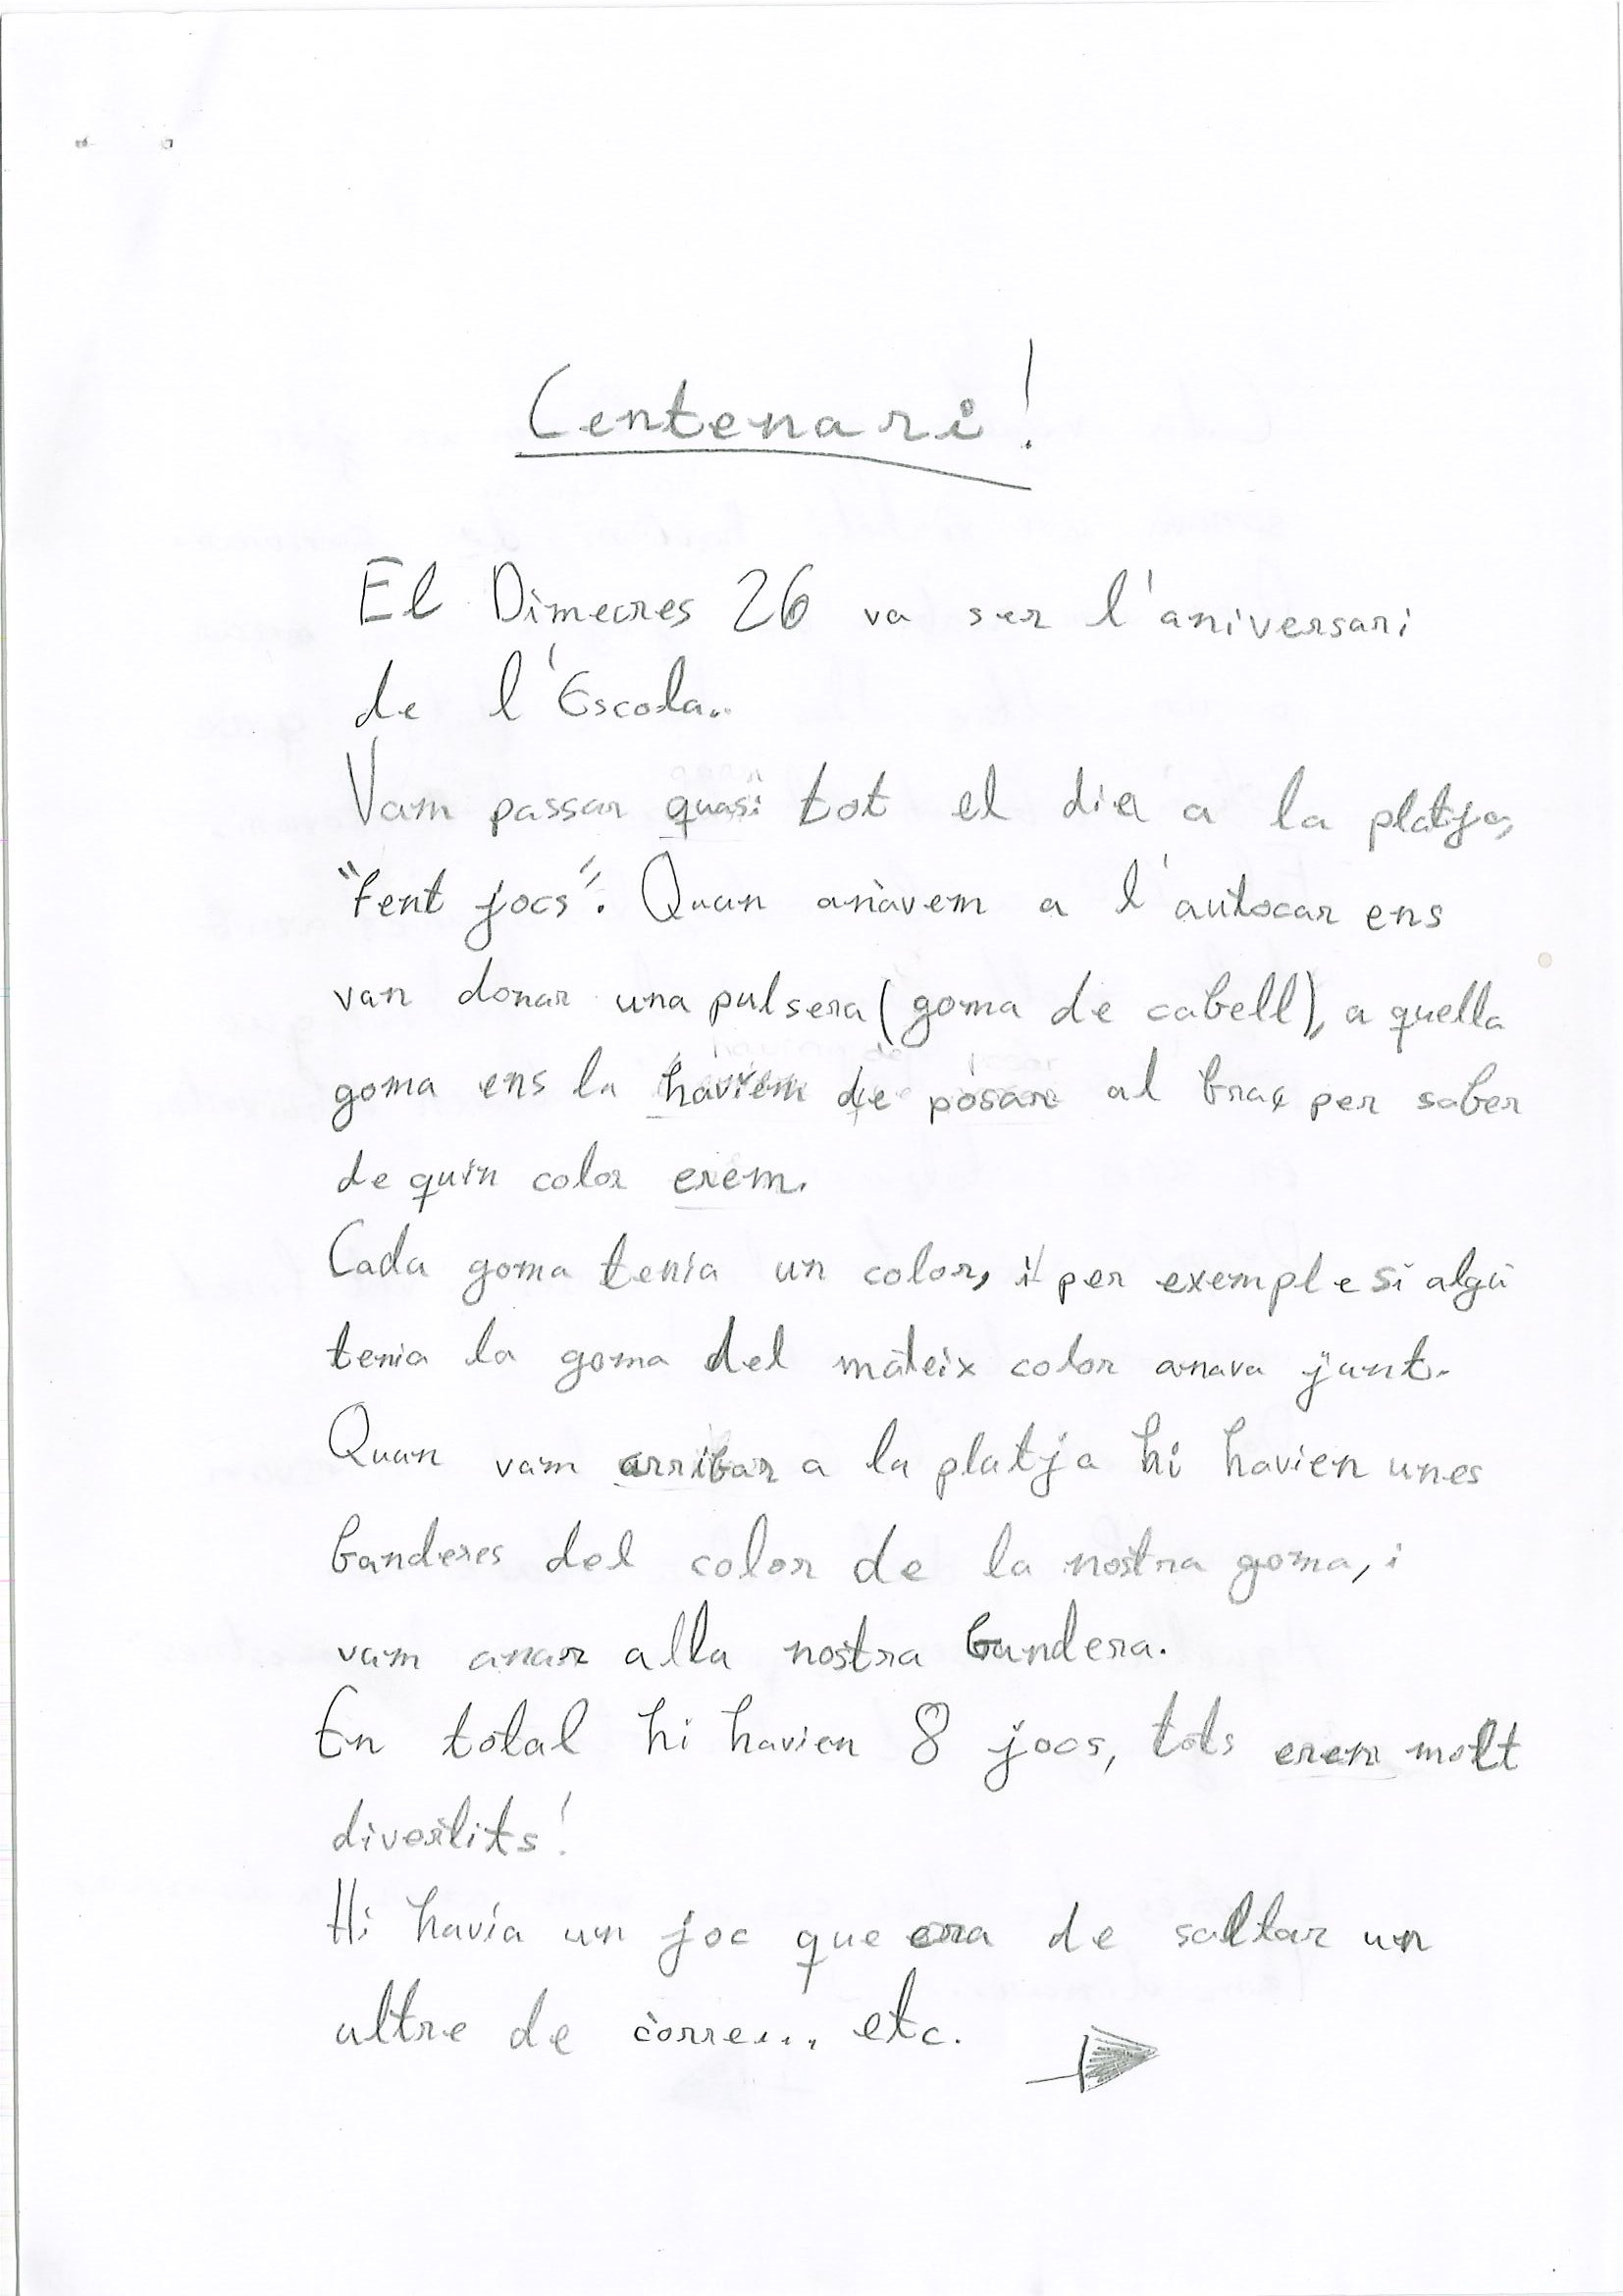 Centenari!
El Dimecres 26 va ser l'aniversari
de l'Escola..
Vam passar quasi tot el dia a la platja,
"fent jocs". Quan anàvem a l'autocar ens
van donar una pulsera (goma de cabell), a quella
goma ens la havíem de posar al braç per saber
de quin color erem.
Cada goma tenia un color, i per exemple si algú
tenia la goma del mateix color anava junt.
Quan vam arribar a la platja hi havien unes
banderes del color de la nostra goma, i
vam anar alla nostra bandera.
En total hi havien 8 jocs, tots eren molt
divertits!
Hi havía un joc que era de saltar un
altre de corre... etc.